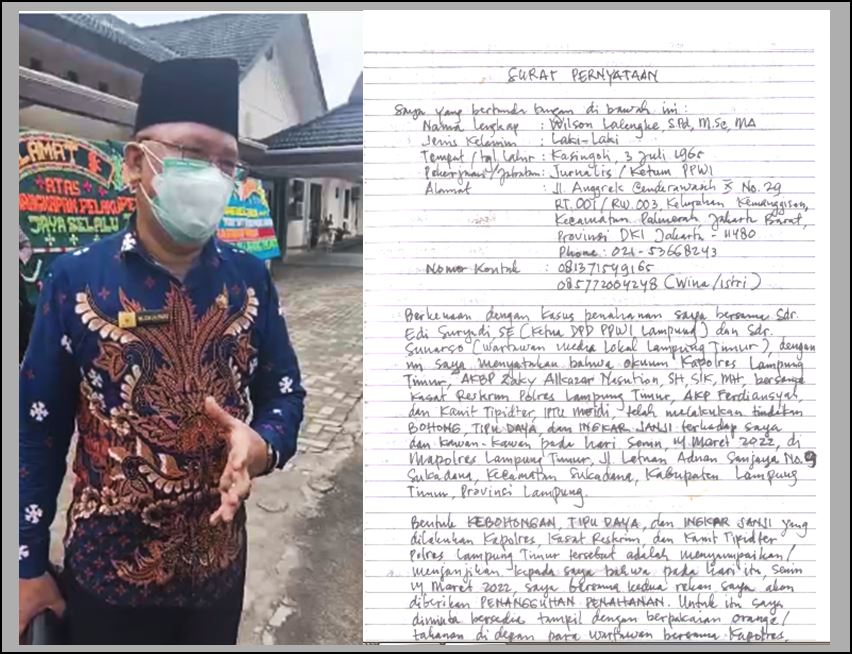 LAMAT
ATAS
JAYA SELALU
SURAT PERNYATAAN
Saya yang bertanda tangan di bawah ini :
Nama lengkap : Wilson Lalengke, SPd, M.Sc, MA
Jenis Kelamin : Laki-Laki
Tempat/tgl lahir : Kasingoli, 3 Juli 1965
Pekerjaan/Jabatan : Jurnalis / Ketum PPWI
Alamat : Jl. Anggrek Cenderawasih X No. 29
RT. 001 / RW. 003, Kelurahan Kemanggisan,
Kecamatan Palmerah Jakarta Barat,
Provinsi DKI Jakarta - 11480
Phone : 021 - 53668243
Nomor Kontak : 081371549165
085772004248 (Wina /istri)
Berkenaan dengan kasus penahanan saya bersama Sdr.
Edi Suryadi SE (Ketua DPD PPWI Lampung) dan Sdr.
Sunarso (Wartawan media lokal Lampung Timur), dengan
ini saya menyatakan bahwa oknum Kapolres Lampung
Timur, AKBP Zaky Alkazar Nasution, SH, SIK, MH, bersama
Kasat Reskrim Polres Lampung Timur, AKP Ferdiansyah,
dan Kanit Tipidter, IPTU Meidi, telah melakukan tindakan
BOHONG, TIPU DAYA, dan INGKAR JANJI terhadap saya
dan kawan-kawan pada hari Senin, 14 Maret 2022, di
Mapolres Lampung Timur, Jl Letnan Adnan Sanjaya No. 9
Sukadana, Kecamatan Sukadana, Kabupaten Lampung
Timur, Provinsi Lampung.
Bentuk KEBOHONGAN, TIPU DAYA, dan INGKAR JANJI yang
dilakukan Kapolres, Kasat Reskrim, dan Kanit Tipidter
Polres Lampung Timur tersebut adalah menyampaikan/
menjanjikan kepada saya bahwa pada hari itu, Senin
14 Maret 2022, saya bersama kedua rekan saya akan
diberikan PENANGGUHAN PENAHANAN. Untuk itu saya
diminta bersedia tampil dengan berpakaian orange/
tahanan di depan para wartawan bersama Kapolres,